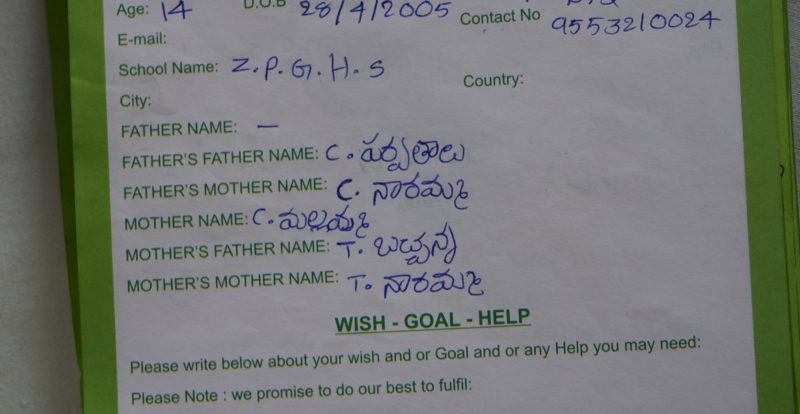 Age: 14 D.O.B 28/4/2005 Contact No 9553210024
E-mail:
School Name: Z.P.G.H.S Country:
City:
FATHER NAME: —
FATHER'S FATHER NAME: C. పర్వతాలు
FATHER'S MOTHER NAME: C. నారమ్మ
MOTHER NAME: C. మల్లమ్మ
MOTHER'S FATHER NAME: T. బచ్చన్న
MOTHER'S MOTHER NAME: T. నారమ్మ
WISH - GOAL - HELP
Please write below about your wish and or Goal and or any Help you may need:
Please Note : we promise to do our best to fulfil: